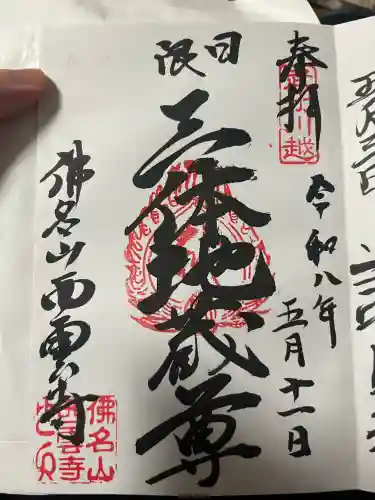 奉拝
令和八年
五月十一日
日限
三体地蔵尊
佛名山西雲寺
佛名山
西雲寺
川越